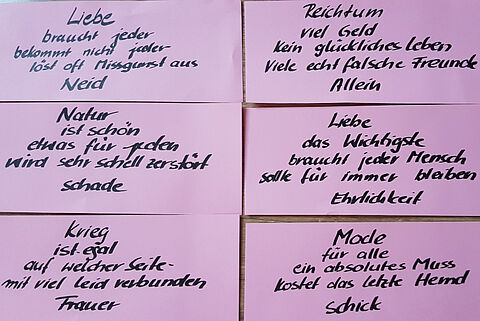 Liebe
braucht jeder
bekommt nicht jeder
löst oft Missgunst aus
Neid
Reichtum
viel Geld
kein glückliches Leben
viele echt falsche Freunde
Allein
Natur
ist schön
etwas für jeden
wird sehr schell zerstört
schade
Liebe
das Wichtigste
braucht jeder Mensch
sollte für immer bleiben
Ehrlichkeit
Krieg
ist egal
auf welcher Seite-
mit viel Leid verbunden
Trauer
Mode
für alle
ein absolutes Muss
kostet das letzte Hemd
schick